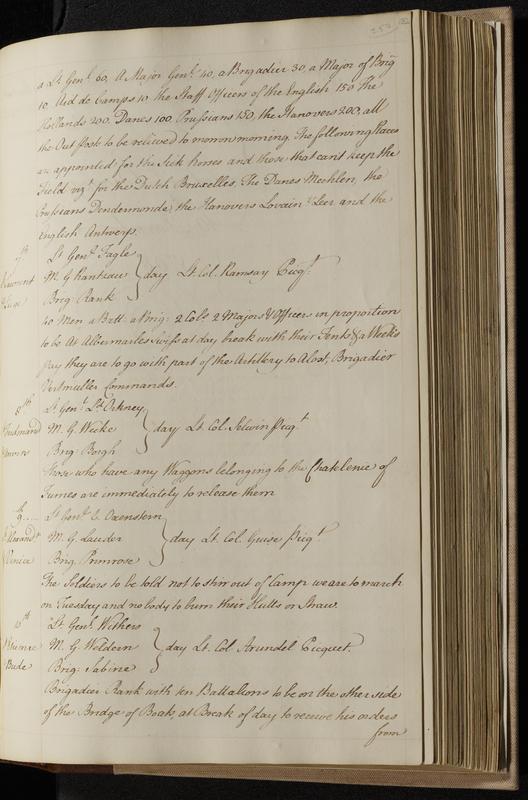 a Lt Genl 60, A Major Genl 40, a Brigadier 30, a Major of Brig
10 Aid de Camps 10 the Staff Officers of the English 150 the
Hollands 200, Danes 100 Prussians 150, the Hanovers 200, all
the Out posts to be relieved to morrow morning. The following Places
are appointed for the Sick horses and those that can't keep the
Field vizt for the Dutch Bruxelles, The Danes Mechlen, the
Prussians Dendermonde, the Hanovers Lovain & Leer and the
English Antwerp.
7th
Lt Genl Fagle
M. G Rantzau } day Lt Col. Ramsay Picqt
Brig Rank
40 Men a Batt. a Brig. 2 Cols 2 Majors & Officers in proportion
to be At Albermarles Swiss at day break with their Tents & a Week's
pay they are to go with part of the Artillery to Alost, Brigadier
Vertmuller Commands.
8th
Lt Genl Ld Orkney
M. G Wecke } day Lt Col. Selwin Picqt
Brig Borgh
Those who have any Waggons belonging to the Chatelenie of
Furnes are immediately to release them
9
Lt Genl C. Oxenstern
M. G Lauder } day Lt. Col. Guise Picqt
Brig. Primrose
Venice
The Soldiers to be told not to stirr out of Camp we are to march
on Tuesday and no body to burn their Hutts or Straw.
10th
Lt Genl Withers
M. G. Weldern } day Lt. Col Arundel Picquet.
Brig: Sabine
Bude
Brigadier Rank with ten Battalions to be on the other side
of the Bridge of Boats, at Break of day to receive his orders
from